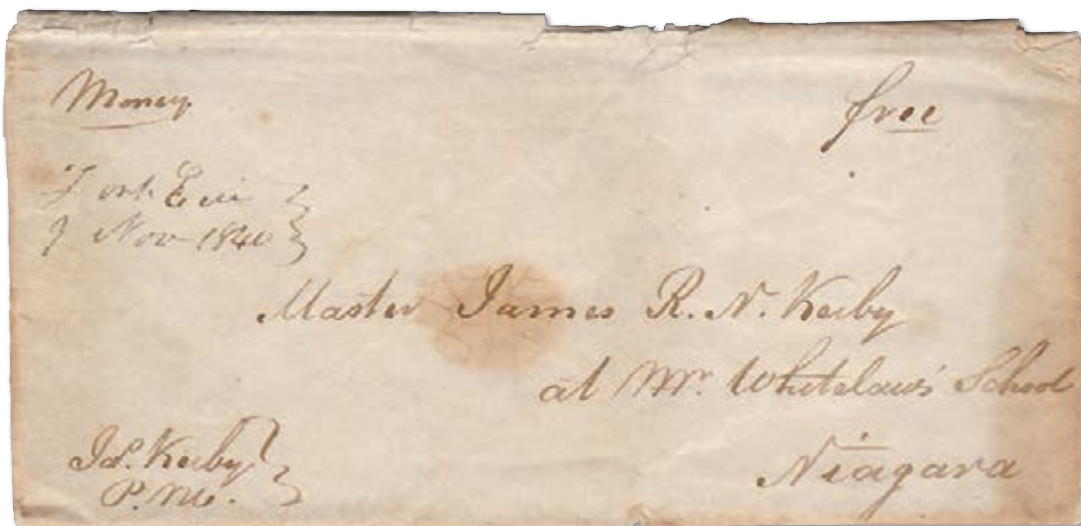 Money
free
Fort Erie
9 Nov 1840
Master James R. N. Kerby
at Mr. Whitelaw's School
Niagara
Js. Kerby
P.M.